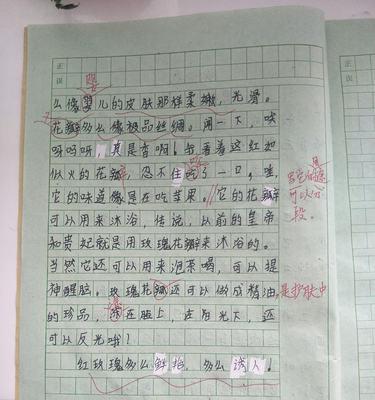 么像婴儿的皮肤那样柔嫩,光滑。
花瓣多么像极品丝绸。闻一下,咦
呀呀呀,真是香啊!我看着这红如
似火的花瓣,忍不住吃了一口。哇,
它的味道像是在吃苹果。它的花瓣
可以用来沐浴,传说,以前的皇帝
和贵妃就是用玫瑰花瓣来沐浴的。
当然它还可以用来泡茶喝,可以提
神醒脑。玫瑰花瓣还可以做成精油,
是护肤中
的珍品,涂在脸上,在阳光下,还
可以反光哦!
红玫瑰多么鲜艳,多么诱人!
正
误
可以切
段。